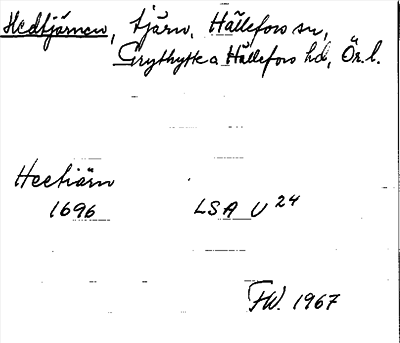 Hedtjärnen, tjärn, Hällefors sn,
Grythytte o Hällefors hd, Ör. l.
Heetiärn
1696 LSA U 24
FW. 1967